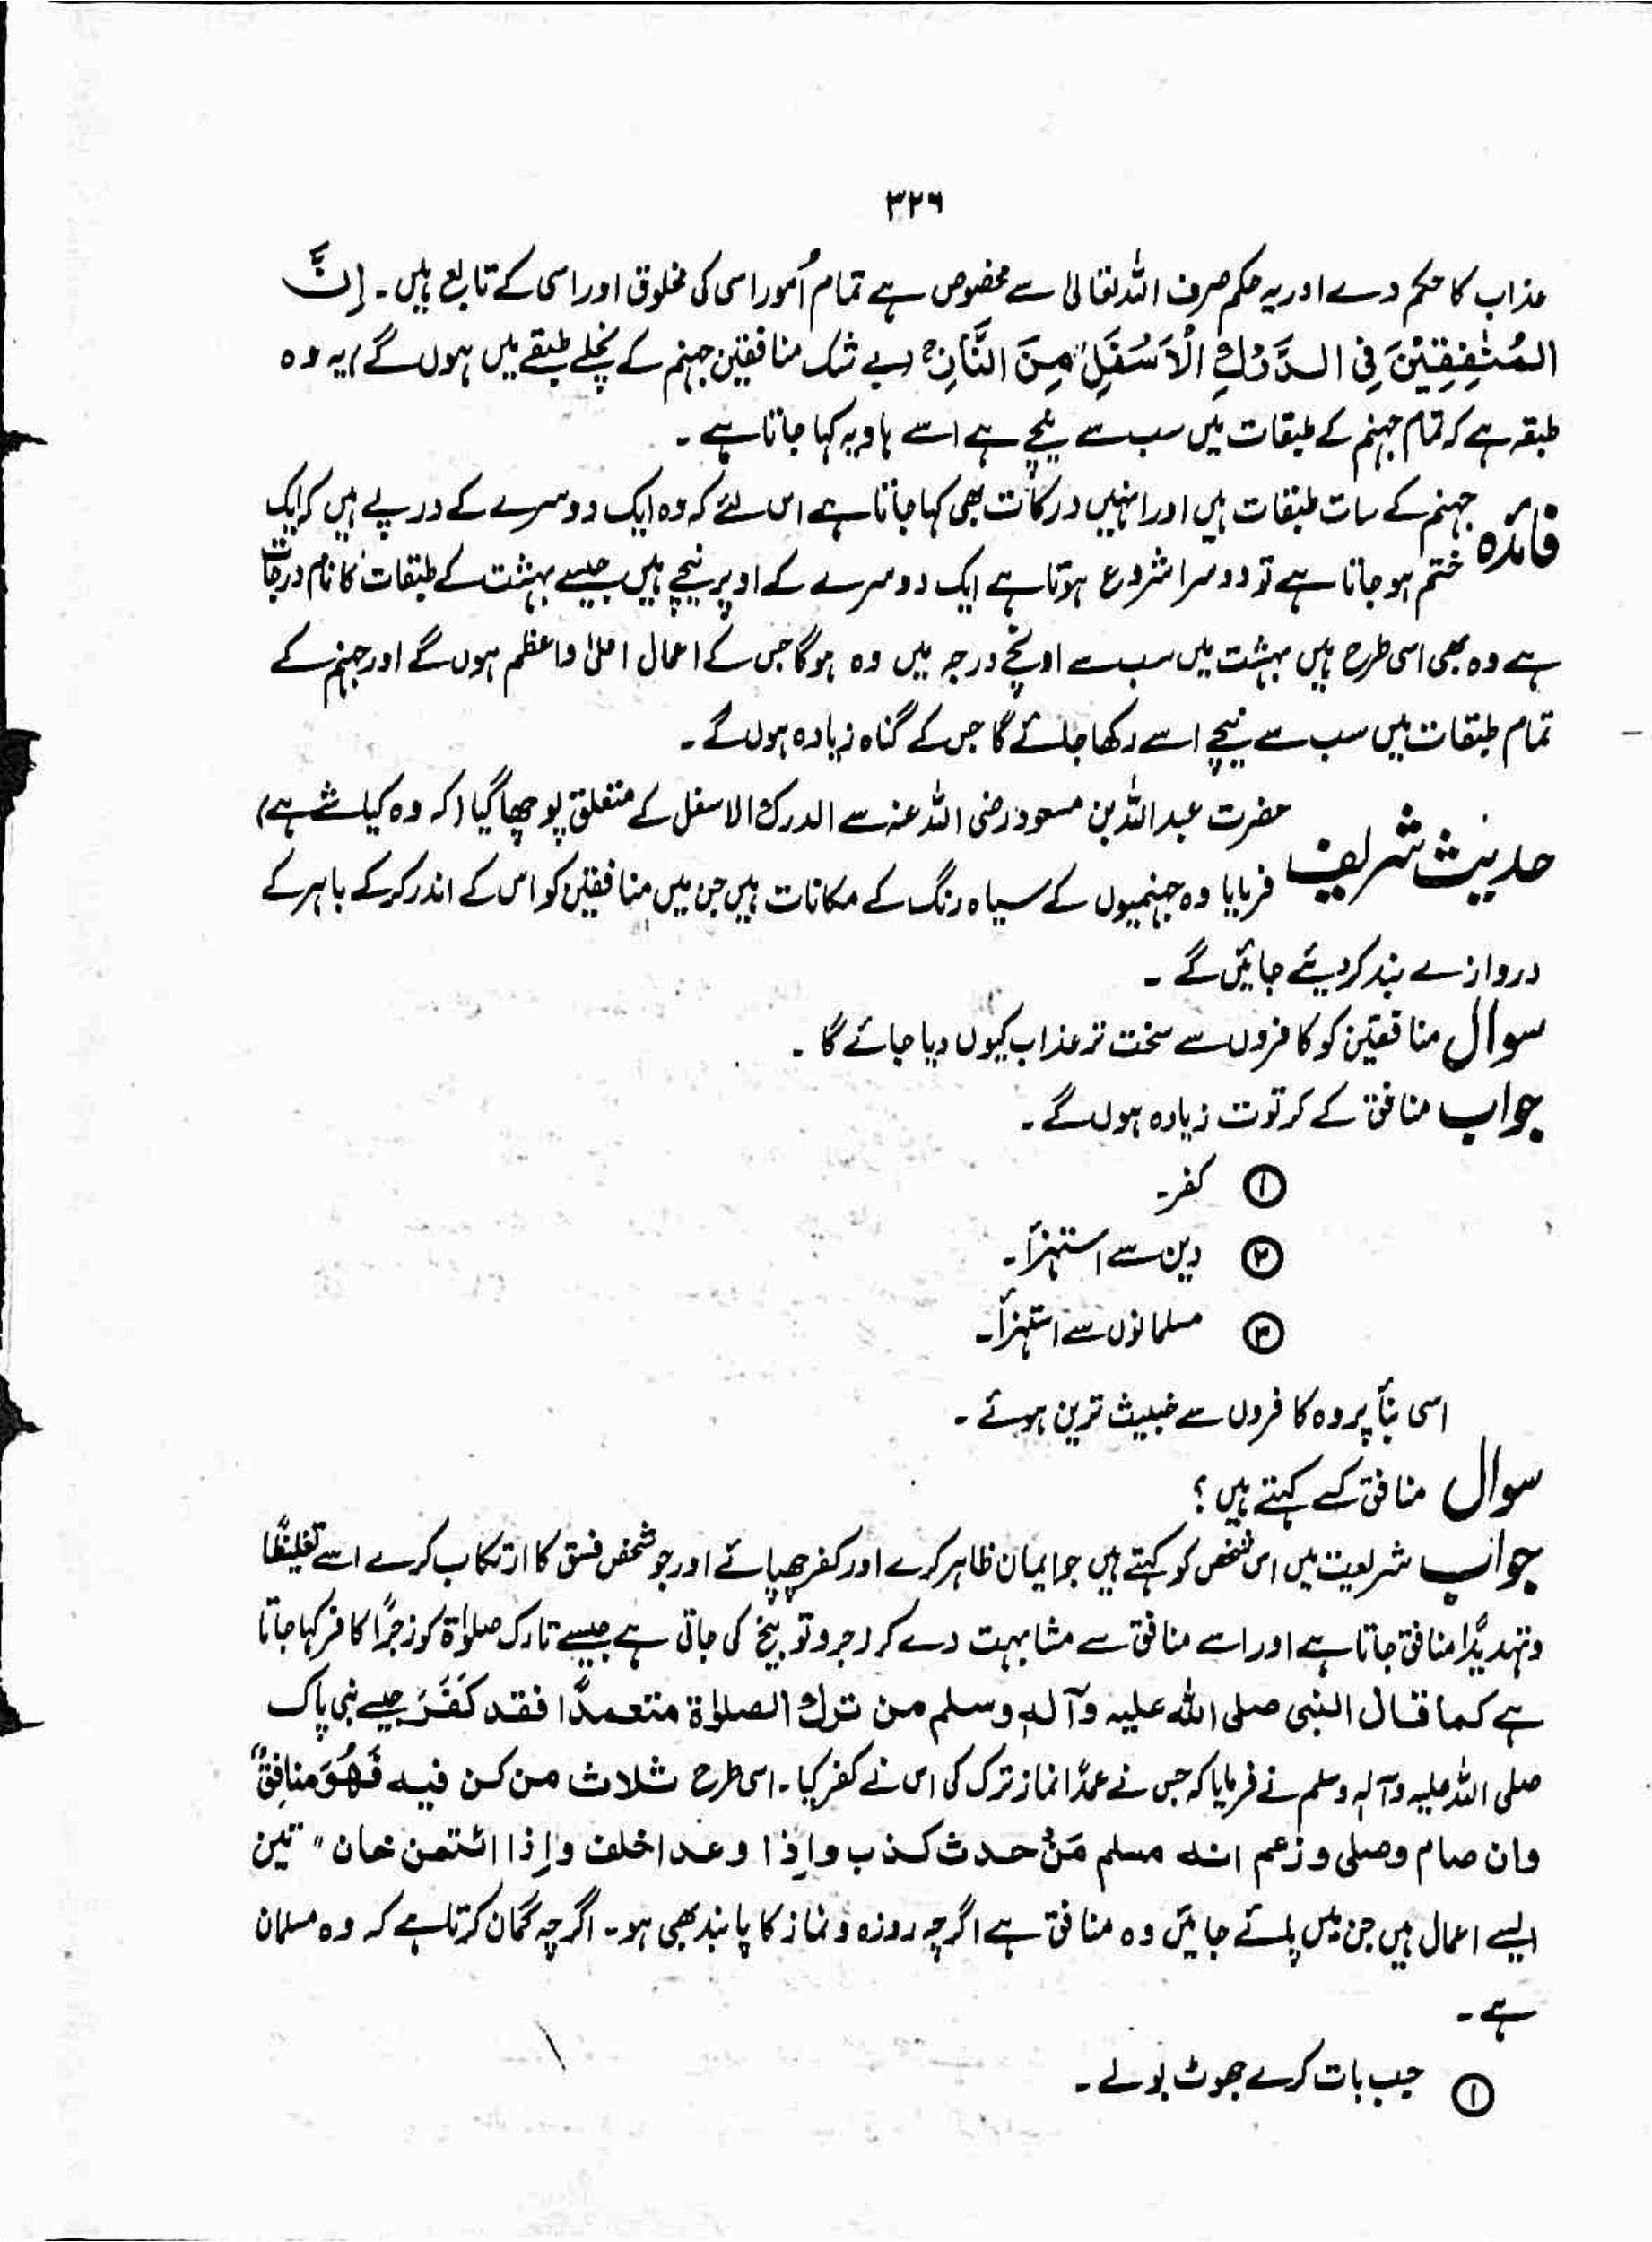 ۳۲۶
عذاب کا حکم دے اور یہ حکم صرف اللہ تعالیٰ سے مخصوص ہے تمام اُمور اسی کی مخلوق اور اسی کے تابع ہیں۔ اِنَّ
الْمُنٰفِقِیْنَ فِی الدَّرْكِ الْاَسْفَلِ مِنَ النَّارِ (بے شک منافقین جہنم کے نچلے طبقے میں ہوں گے) یہ وہ
طبقہ ہے کہ تمام جہنم کے طبقات میں سب سے نیچے ہے اسے ہاویہ کہا جاتا ہے۔
فائدہ جہنم کے سات طبقات ہیں اور انہیں درکات بھی کہا جاتا ہے اس لئے کہ وہ ایک دوسرے کے درپے ہیں کہ ایک
ختم ہو جاتا ہے تو دوسرا شروع ہوتا ہے ایک دوسرے کے اوپر نیچے ہیں جیسے بہشت کے طبقات کا نام درجات
ہے وہ بھی اسی طرح ہیں بہشت میں سب سے اونچے درجہ میں وہ ہوگا جس کے اعمال اعلیٰ واعظم ہوں گے اور جہنم کے
تمام طبقات میں سب سے نیچے اسے رکھا جائے گا جس کے گناہ زیادہ ہوں گے۔
حدیث شریف حضرت عبداللہ بن مسعود رضی اللہ عنہ سے الدرک الاسفل کے متعلق پوچھا گیا (کہ وہ کیا شے ہے)
فرمایا وہ جہنمیوں کے سیاہ رنگ کے مکانات ہیں جن میں منافقین کو اس کے اندر کرکے باہر کے
دروازے بند کر دیئے جائیں گے۔
سوال منافقین کو کافروں سے سخت تر عذاب کیوں دیا جائے گا۔
جواب منافق کے کرتوت زیادہ ہوں گے۔
① کفر۔
② دین سے استہزأ۔
③ مسلمانوں سے استہزأ۔
اسی بنأ پر وہ کافروں سے خبیث ترین ہوئے۔
سوال منافق کسے کہتے ہیں؟
جواب شریعت میں اس شخص کو کہتے ہیں جو ایمان ظاہر کرے اور کفر چھپائے اور جو شخص فسق کا ارتکاب کرے اسے تغلیظًا
وتہدیدًا منافق جاتا ہے اور اسے منافق سے مشابہت دے کر زجر و توبیخ کی جاتی ہے جیسے تارک صلوٰۃ کو زجرًا کافر کہا جاتا
ہے کما قال النبی صلی اللہ علیہ وآلہٖ وسلم من ترك الصلوٰۃ متعمدًا فقد کَفَرَ جیسے نبی پاک
صلی اللہ علیہ وآلہٖ وسلم نے فرمایا کہ جس نے عمدًا نماز ترک کی اس نے کفر کیا۔ اسی طرح ثلاث من کن فیہ فَھُوَ منافِقٌ
وان صام وصلی وزعم انہ مسلم مَنْ حدث کذب واِذا وعد اخلف واِذا ائتمن خان " تین
ایسے اعمال ہیں جن میں پائے جائیں وہ منافق ہے اگرچہ روزہ و نماز کا پابند بھی ہو۔ اگرچہ گمان کرتا ہے کہ وہ مسلمان
ہے۔
① جب بات کرے جھوٹ بولے۔